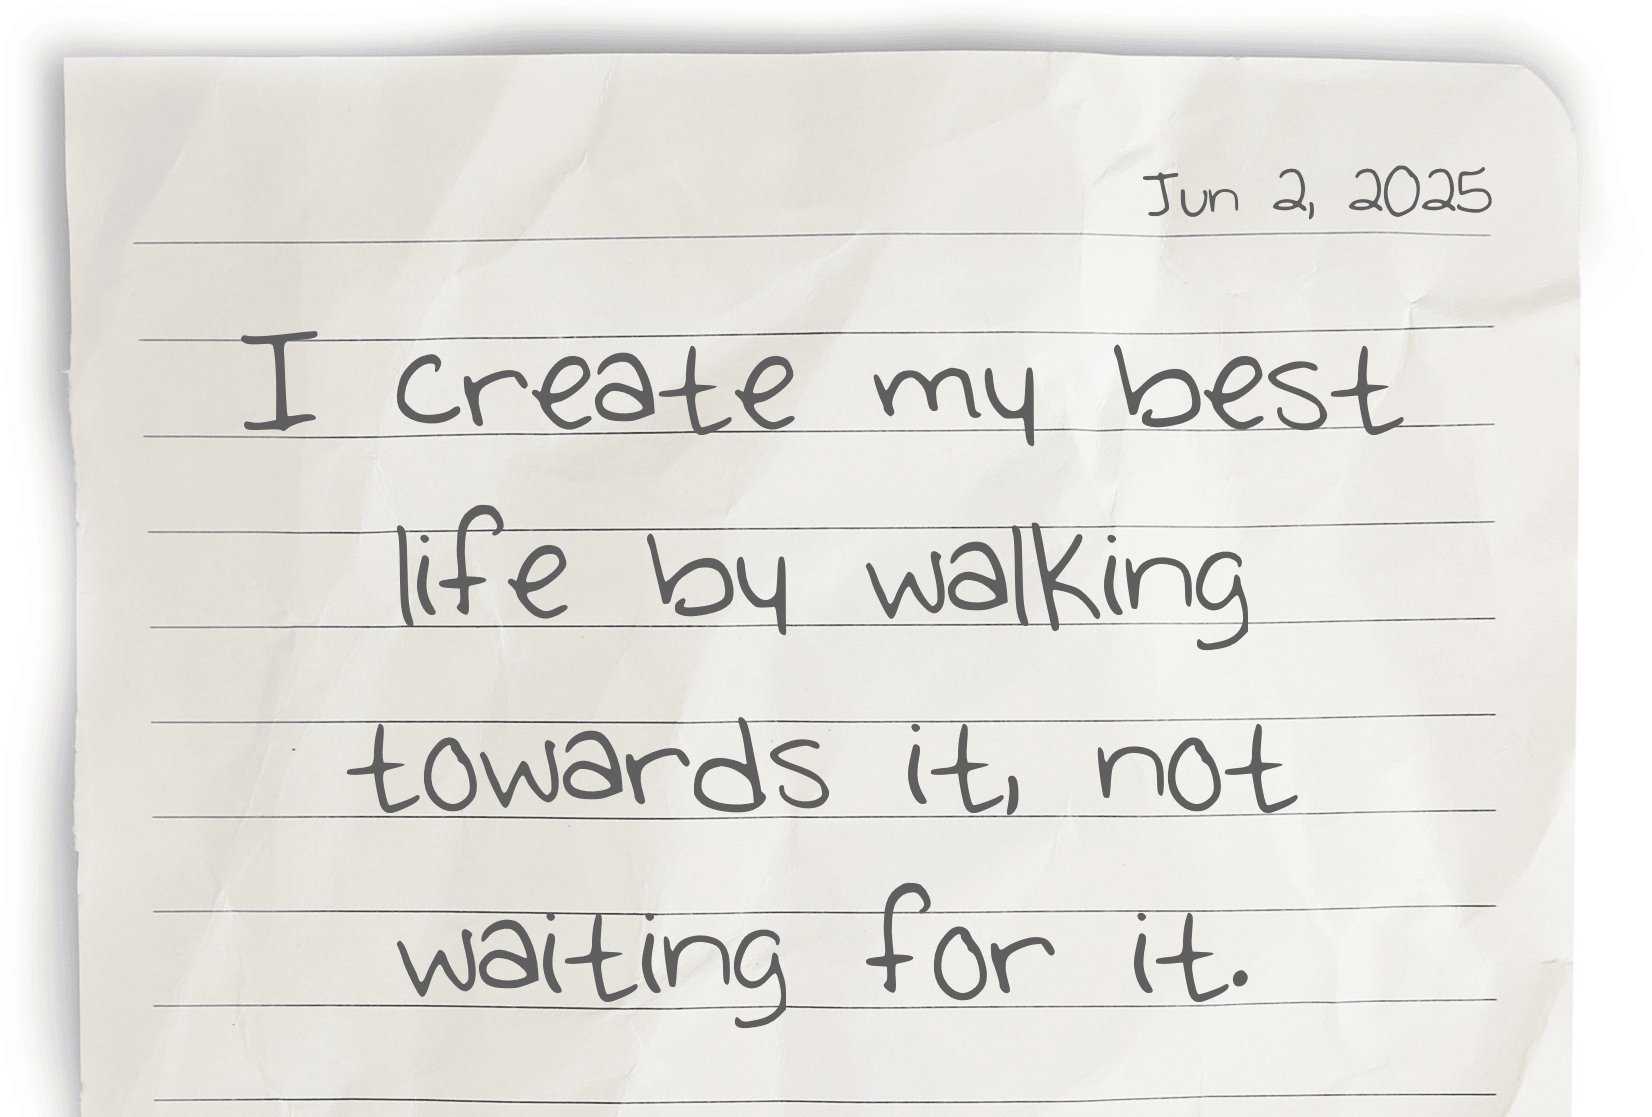 Jun 2, 2025
I create my best
life by walking
towards it, not
waiting for it.